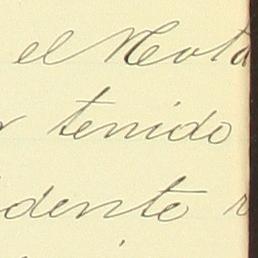 el Nota
tenido
dente